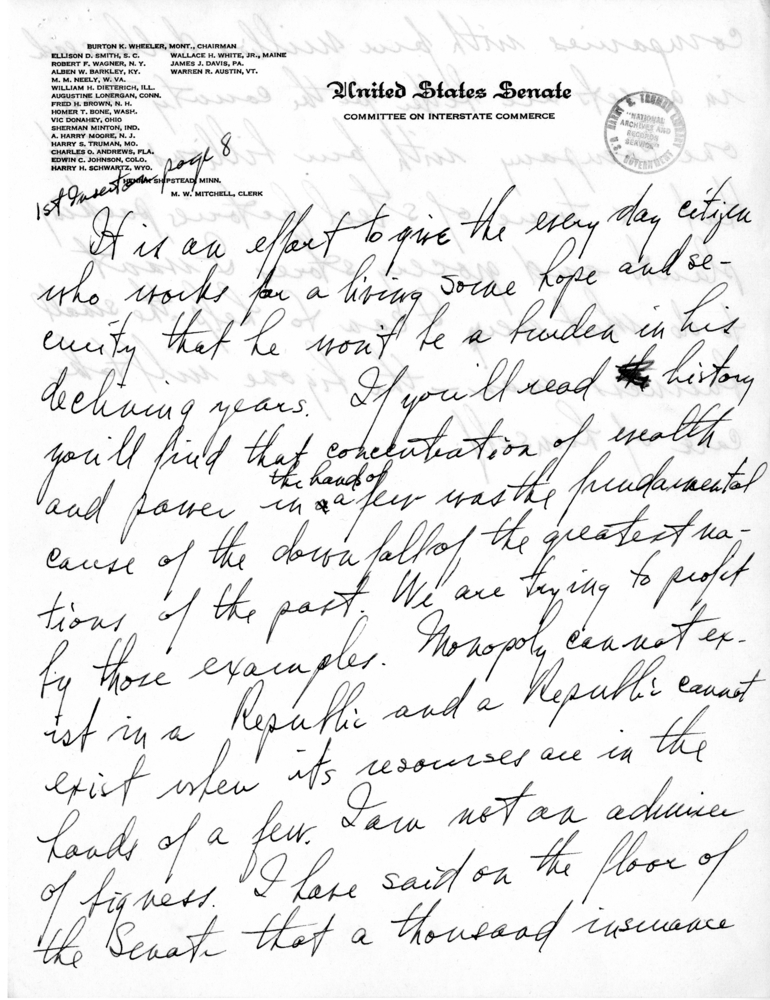 BURTON K. WHEELER, MONT., CHAIRMAN
ELLISON D. SMITH, S. C. WALLACE H. WHITE, JR., MAINE
ROBERT F. WAGNER, N. Y. JAMES J. DAVIS, PA.
ALBEN W. BARKLEY, KY. WARREN R. AUSTIN, VT.
M. M. NEELY, W. VA.
WILLIAM H. DIETERICH, ILL.
AUGUSTINE LONERGAN, CONN.
FRED H. BROWN, N. H.
HOMER T. BONE, WASH.
VIC DONAHEY, OHIO
SHERMAN MINTON, IND.
A. HARRY MOORE, N. J.
HARRY S. TRUMAN, MO.
CHARLES O. ANDREWS, FLA.
EDWIN C. JOHNSON, COLO.
HARRY H. SCHWARTZ, WYO.
SHIPSTEAD, MINN.
M. W. MITCHELL, CLERK
United States Senate
COMMITTEE ON INTERSTATE COMMERCE
HARRY S. TRUMAN LIBRARY
"NATIONAL
ARCHIVES AND
RECORDS
SERVICE"
U.S. GOVERNMENT
1st Insertion page 8
It is an effort to give the every day citizen
who works for a living some hope and se-
curity that he won't be a burden in his
declining years. If you'll read history
you'll find that concentration of wealth
and power in the hands of a few was the fundamental
cause of the downfall of the greatest na-
tions of the past. We are trying to profit
by those examples. Monopoly cannot ex-
ist in a Republic and a Republic cannot
exist when its resourses are in the
hands of a few. I am not an admirer
of bigness. I have said on the floor of
the Senate that a thousand insurance